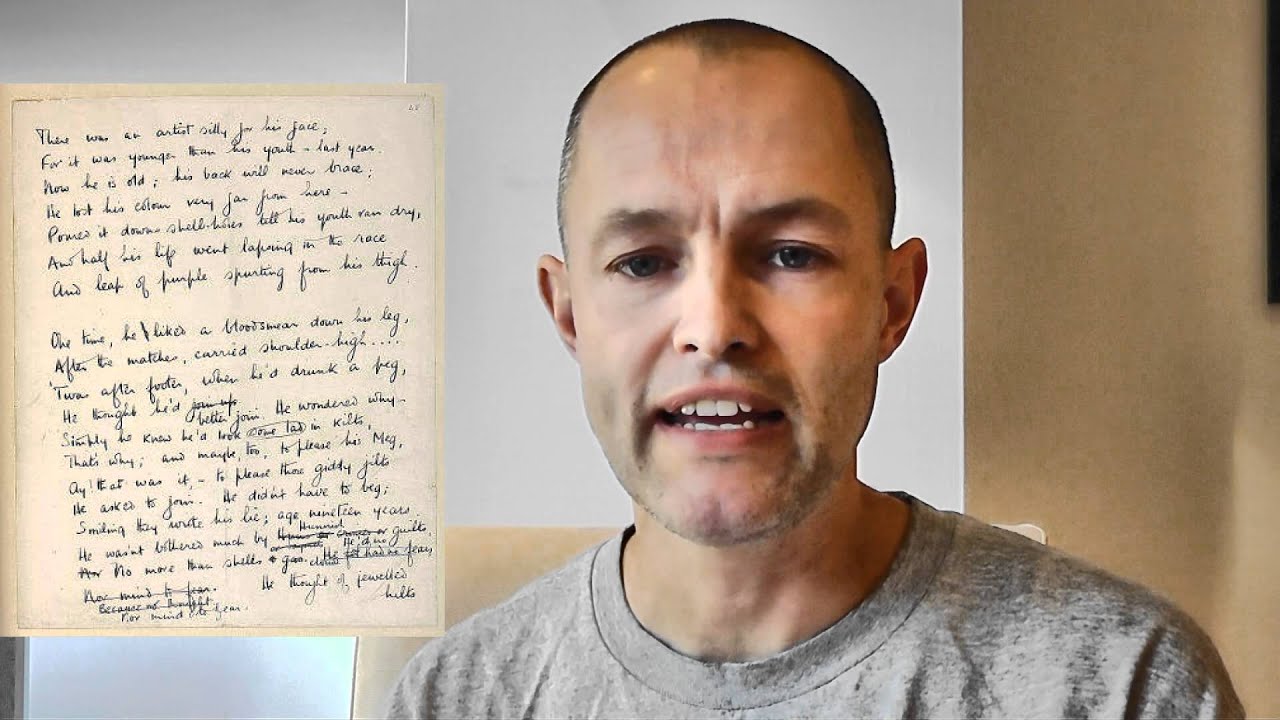 There was an artist silly for his face;
For it was younger than his youth - last year.
Now he is old; his back will never brace;
He lost his colour very far from here -
Poured it down shell-holes till his youth ran dry,
And half his life went lapsing in the race
And leap of purple spurting from his thigh.
One time, he liked a bloodsmear down his leg,
After the matches, carried shoulder-high....
'Twas after footer, when he'd drunk a peg,
He thought he'd join up
better join. He wondered why -
Simply he knew he'd look some lad in kilts,
That's why; and maybe, too, to please his Meg,
Ay! that was it, - to please those giddy jilts
He asked to join. He didn't have to beg;
Smiling they wrote his lie; age nineteen years.
He wasn't bothered much by guilts,
No more than shells & gas. He had no fears
Nor mind to fear.
He thought of jewelled
hilts
Nor mind to fear.